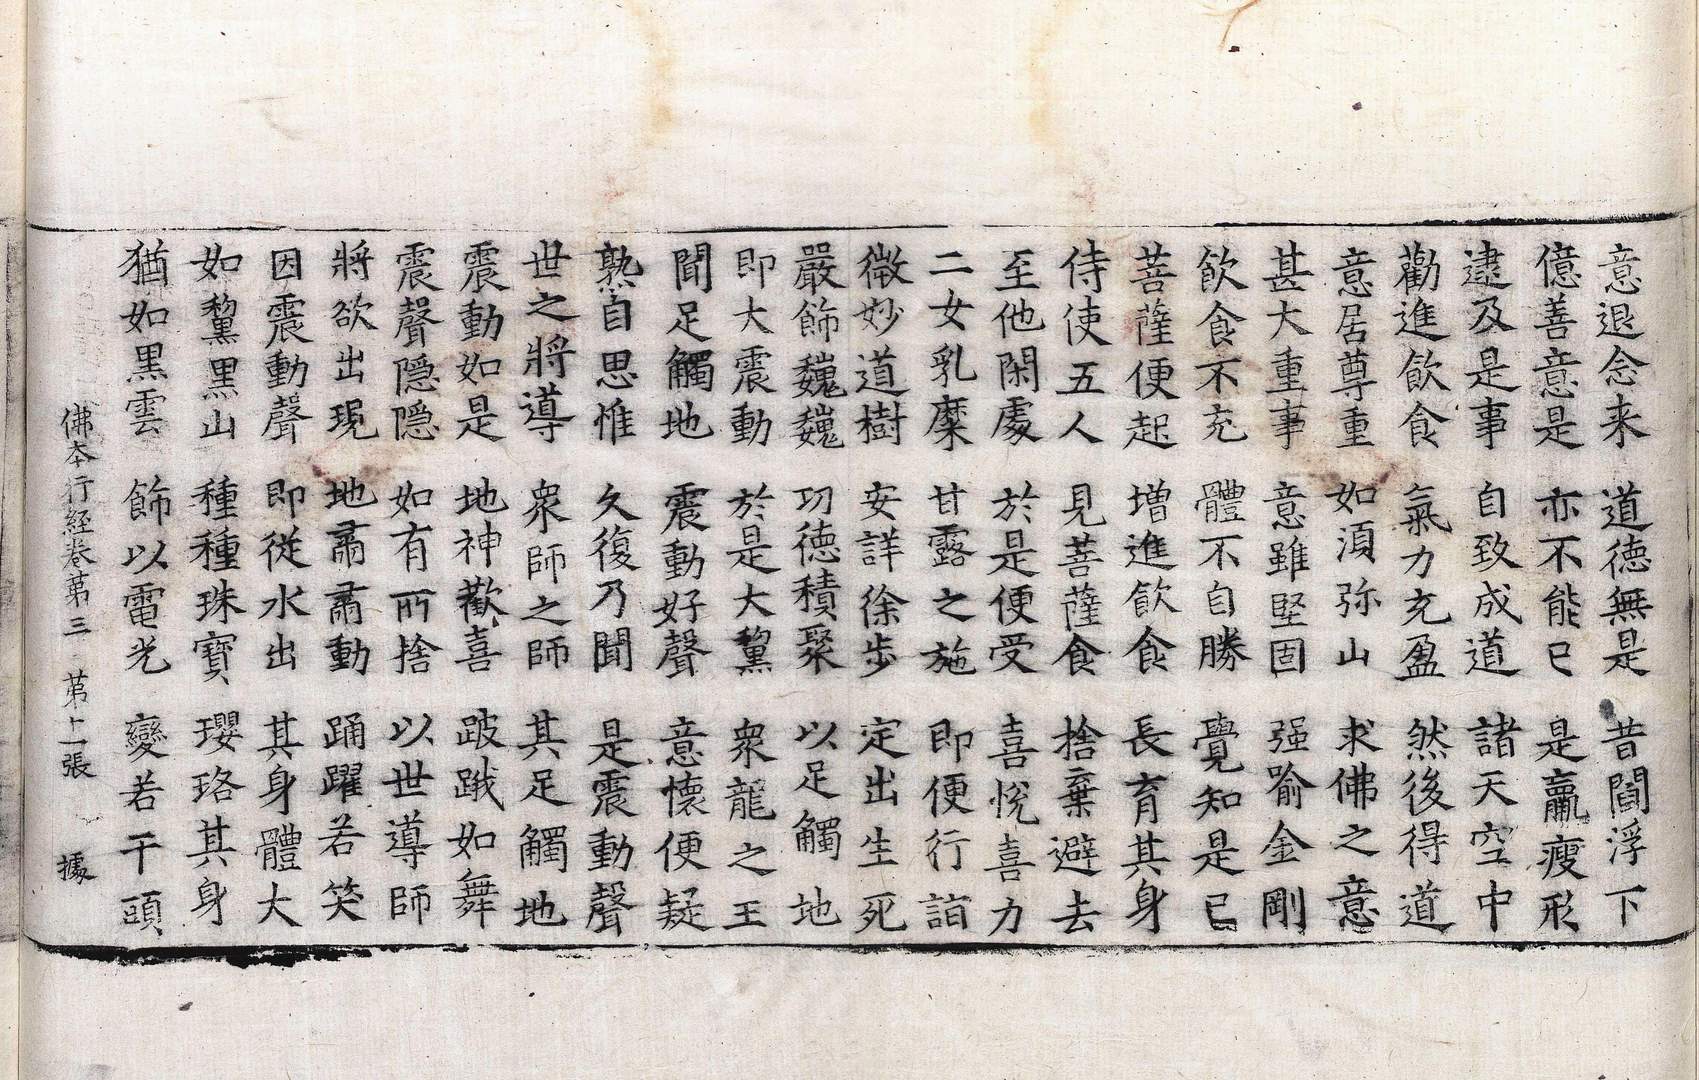 意退念来　道德無是　昔閻浮下
億善意是　亦不能已　是羸瘦形
逮及是事　自致成道　諸天空中
勸進飲食　氣力充盈　然後得道
意居尊重　如湏弥山　求佛之意
甚大重事　意雖堅固　强喻金剛
飲食不充　體不自勝　覺知是已
菩薩便起　增進飲食　長育其身
侍使五人　見菩薩食　捨棄避去
至他閑處　於是便受　喜悅喜力
二女乳糜　甘露之施　即便行詣
微妙道樹　安詳徐步　定出生死
嚴飾巍巍　功德積聚　以足觸地
即大震動　於是大黧　衆龍之王
聞足觸地　震動好聲　意懷便疑
熟自思惟　久復乃聞　是震動聲
世之將導　衆師之師　其足觸地
震動如是　地神歡喜　跛蹴如舞
震聲隱隱　如有所捨　以世導師
將欲出現　地肅肅動　踊躍若笑
因震動聲　即從水出　其身體大
如黧黑山　種種珠寶　瓔珞其身
猶如黑雲　飾以電光　變若干頭
佛本行経卷第三　第十一張　據